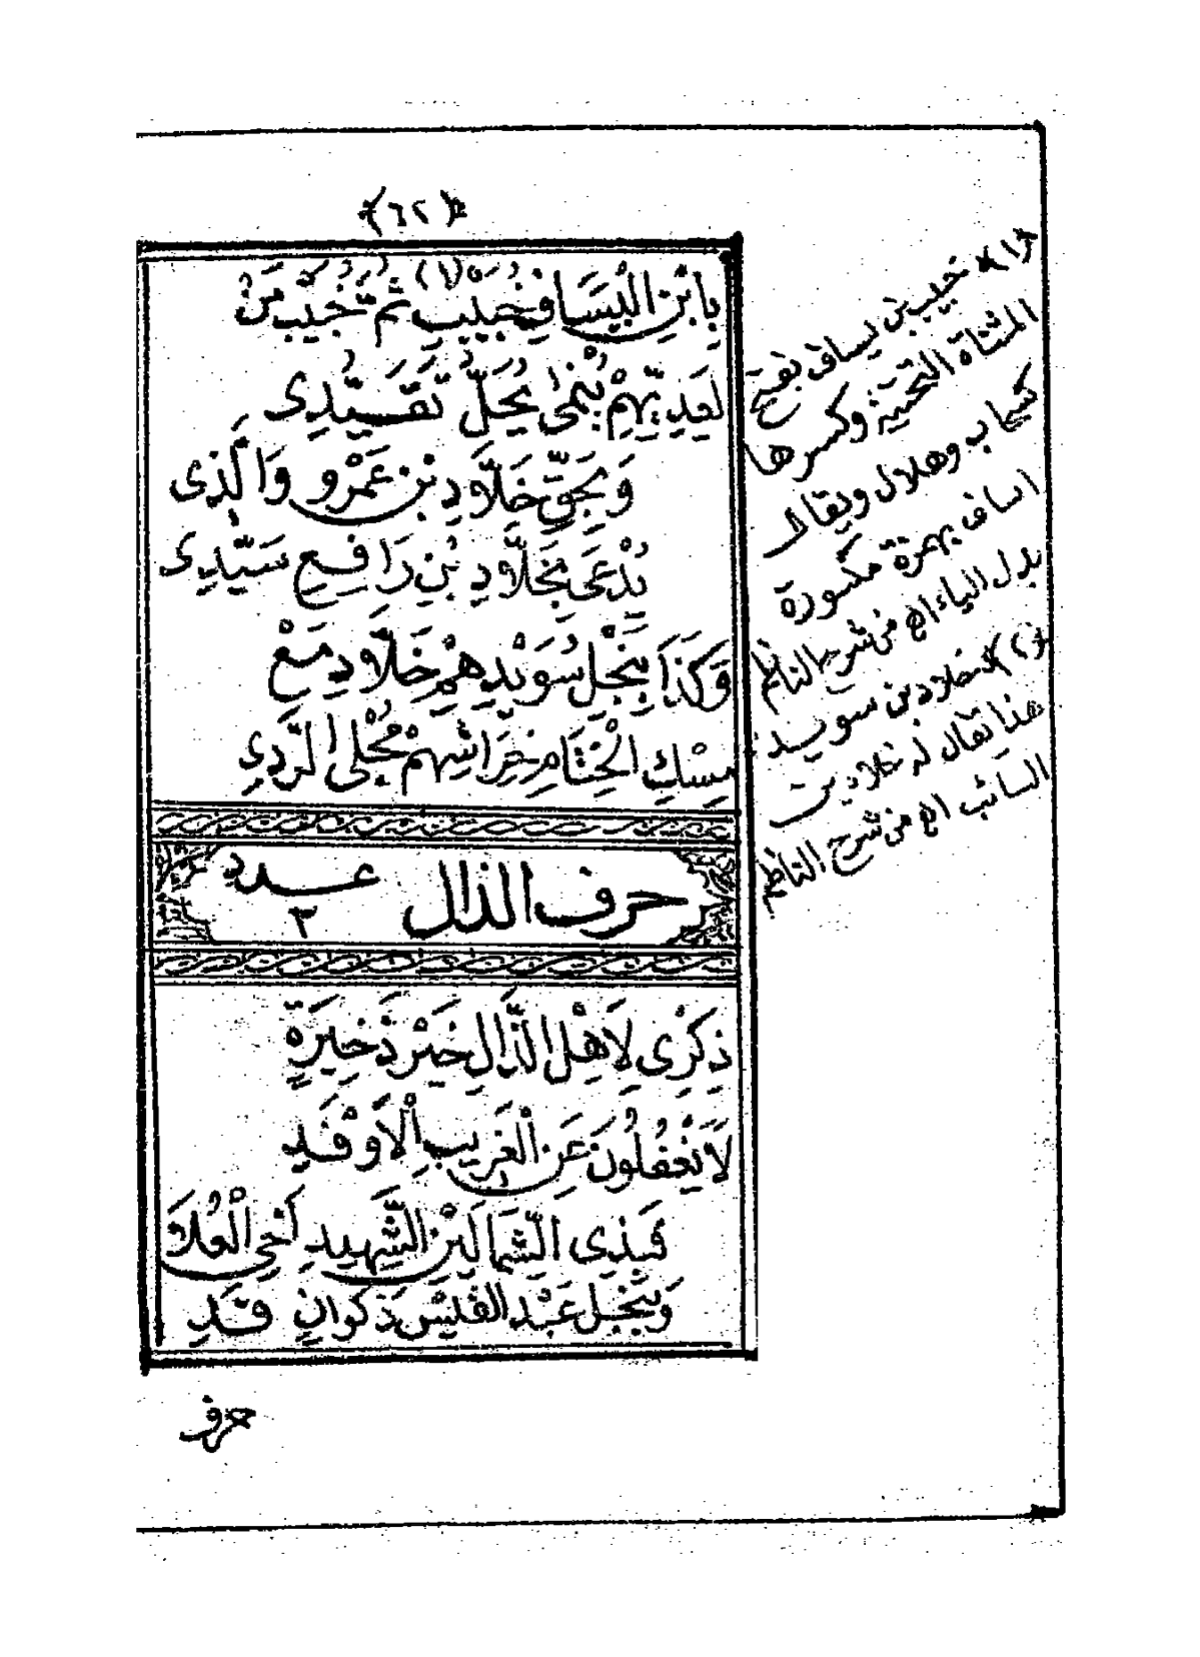 ﴿٦٢﴾
بِابْنِ الْيَسَافِ خُبَيْبٍ (١) ثُمَّ خُبَيْبِ مَنْ
لِعَدِيِّهِمْ يُنْمَى بِحَلِّ تَقَيُّدِى
وَبِحَقِّ خَلَّادِ بْنِ عَمْرٍو وَالَّذِى
يُدْعَى بِخَلَّادِ بْنِ رَافِعِ سَيِّدِى
وَكَذَا بِنَجْلِ سُوَيْدِهِمْ خَلَّادِ مَعْ
مِسْكِ الْخِتَامِ خِرَاشِهِمْ مُجْلِى الرَّدِى
حرف الذال عدد ٣
ذِكْرِى لِاَهْلِ الذَّالِ خَيْرُ ذَخِيرَةٍ
لَا يَغْفُلُونَ عَنِ الْغَرِيبِ الْاَوْفَدِ
فَبِذِى الشِّمَالَيْنِ الشَّهِيدِ أَخِى الْعُلَا
وَبِنَجْلِ عَبْدِ الْقَيْسِ ذَكْوَانٍ قَدِ
حرف
﴿١﴾ خبيب بن يساف بفتح
المثناة التحتية وكسرها
ككتاب وهلال ويقال
اساف بهمزة مكسورة
بدل الياء اه من شرح الناظم
خلاد بن سويد
هذا يقال له خلاد بن
السائب اه من شرح الناظم